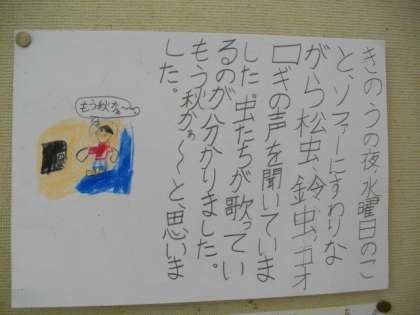 きのうの夜、水曜日のこ
と、ソファーにすわりな
がら松虫、鈴虫、コオ
ロギの声を聞いていま
した。虫たちが歌ってい
るのが分かりました。
もう秋かぁ〜と、思いま
した。
もう秋かぁ〜。